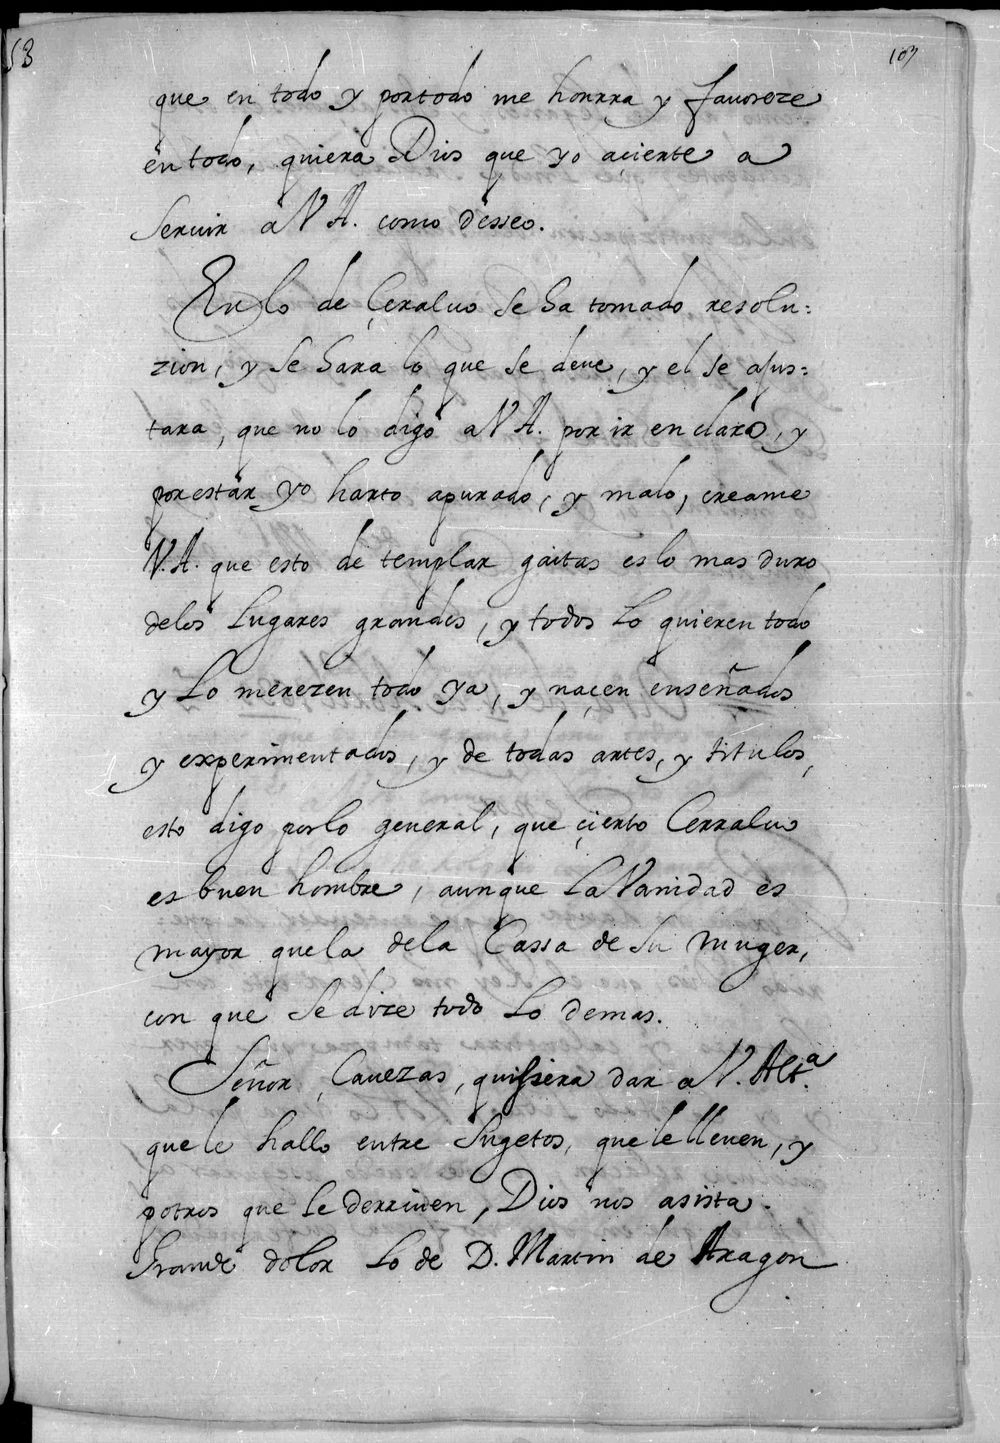 58
107
que en todo y por todo me honrra y fauoreze
en todo, quiera Dios que yo açierte a
seruir a V A. como desseo.
En lo de Çeraluo se ha tomado resolu=
zion, y se hara lo que se deue, y el se ajus=
tara, que no lo digo a V A. por ir en claro, y
por estar yo harto apurado, y malo, creame
V. A. que esto de templar gaitas es lo mas duro
delos lugares grandes, y todos lo quieren todo
y lo merezen todo ya, y naçen enseñados
y experimentados, y de todas artes, y titulos,
esto digo por lo general, que çierto Cerraluo
es buen hombre, aunque la Vanidad es
mayor que la dela Cassa de su muger,
con que se dize todo lo demas.
Señor, Cauezas, quissiera dar a V. Alt.ª
que le hallo entre sugetos, que le lleuen, y
potros que le derriuen, Dios nos asista.
Grande dolor lo de D. Martin de Aragon